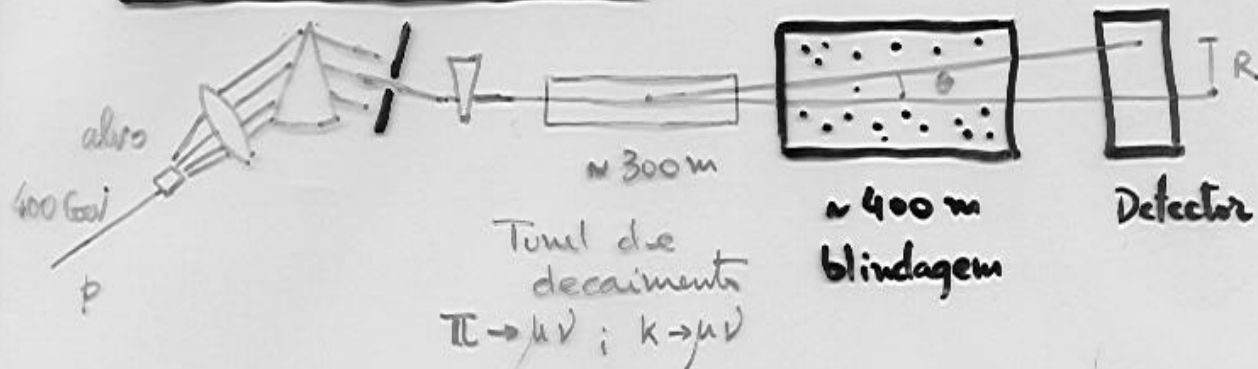 alvo
400 GeV
p
~ 300 m
Tunel de
decaimento
π → μν ; K → μν
~ 400 m
blindagem
θ
Detector
R